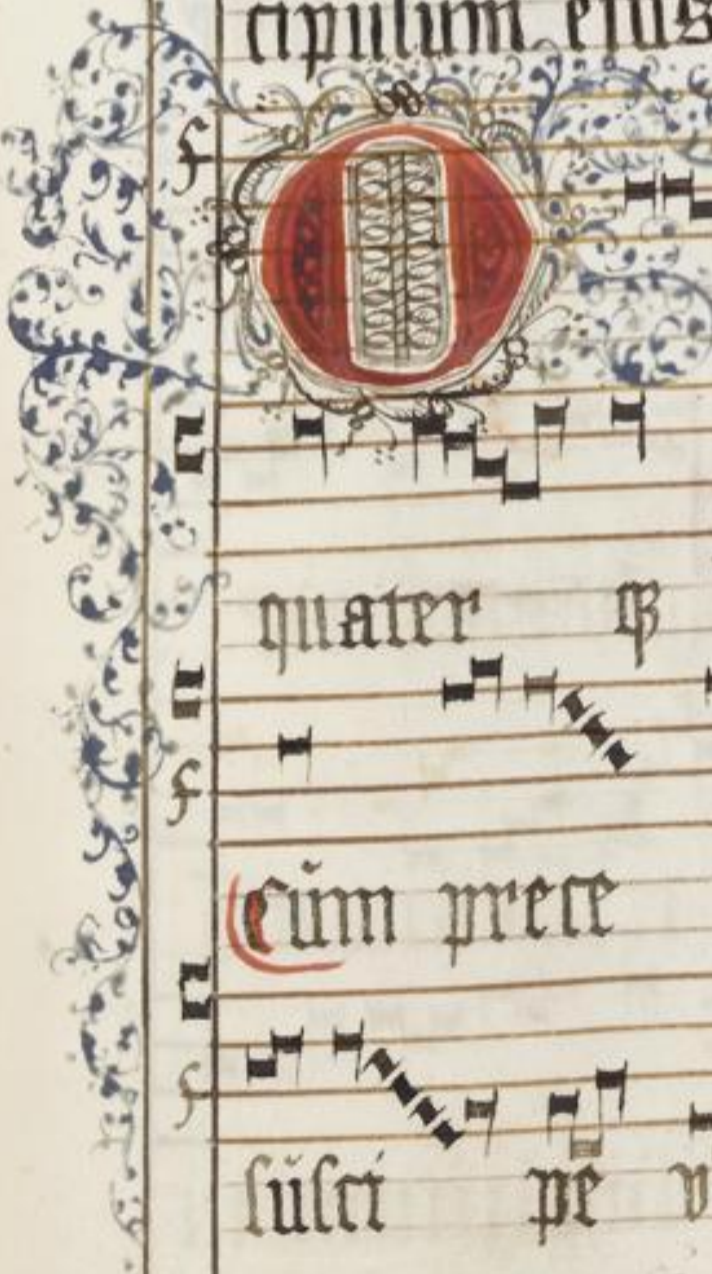 cipulum eius
O
quater
Cum prece
suscipe v